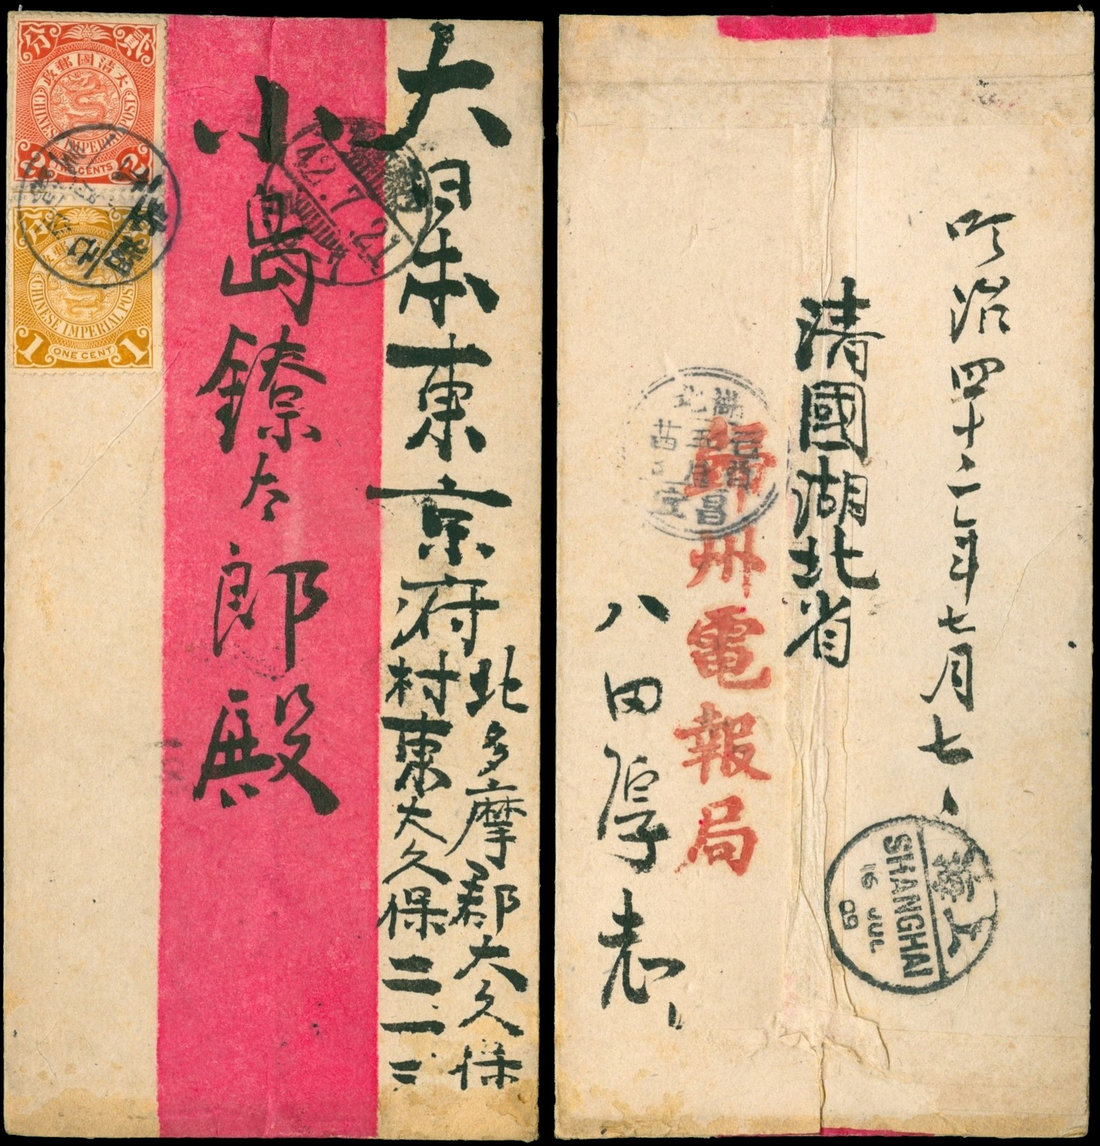 大日本東京府
北多摩郡大久保
村東大久保二一三
小島鐐太郎殿
貳分
大清國郵政
CHINESE IMPERIAL POST
2 CENTS 2
分
CHINESE IMPERIAL POST
1 ONE CENT 1
42.7.2
明治四十二年七月七、
清國湖北省
歸州電報局
八田厚志
湖北
宜昌
上海
SHANGHAI
16 JUL
09